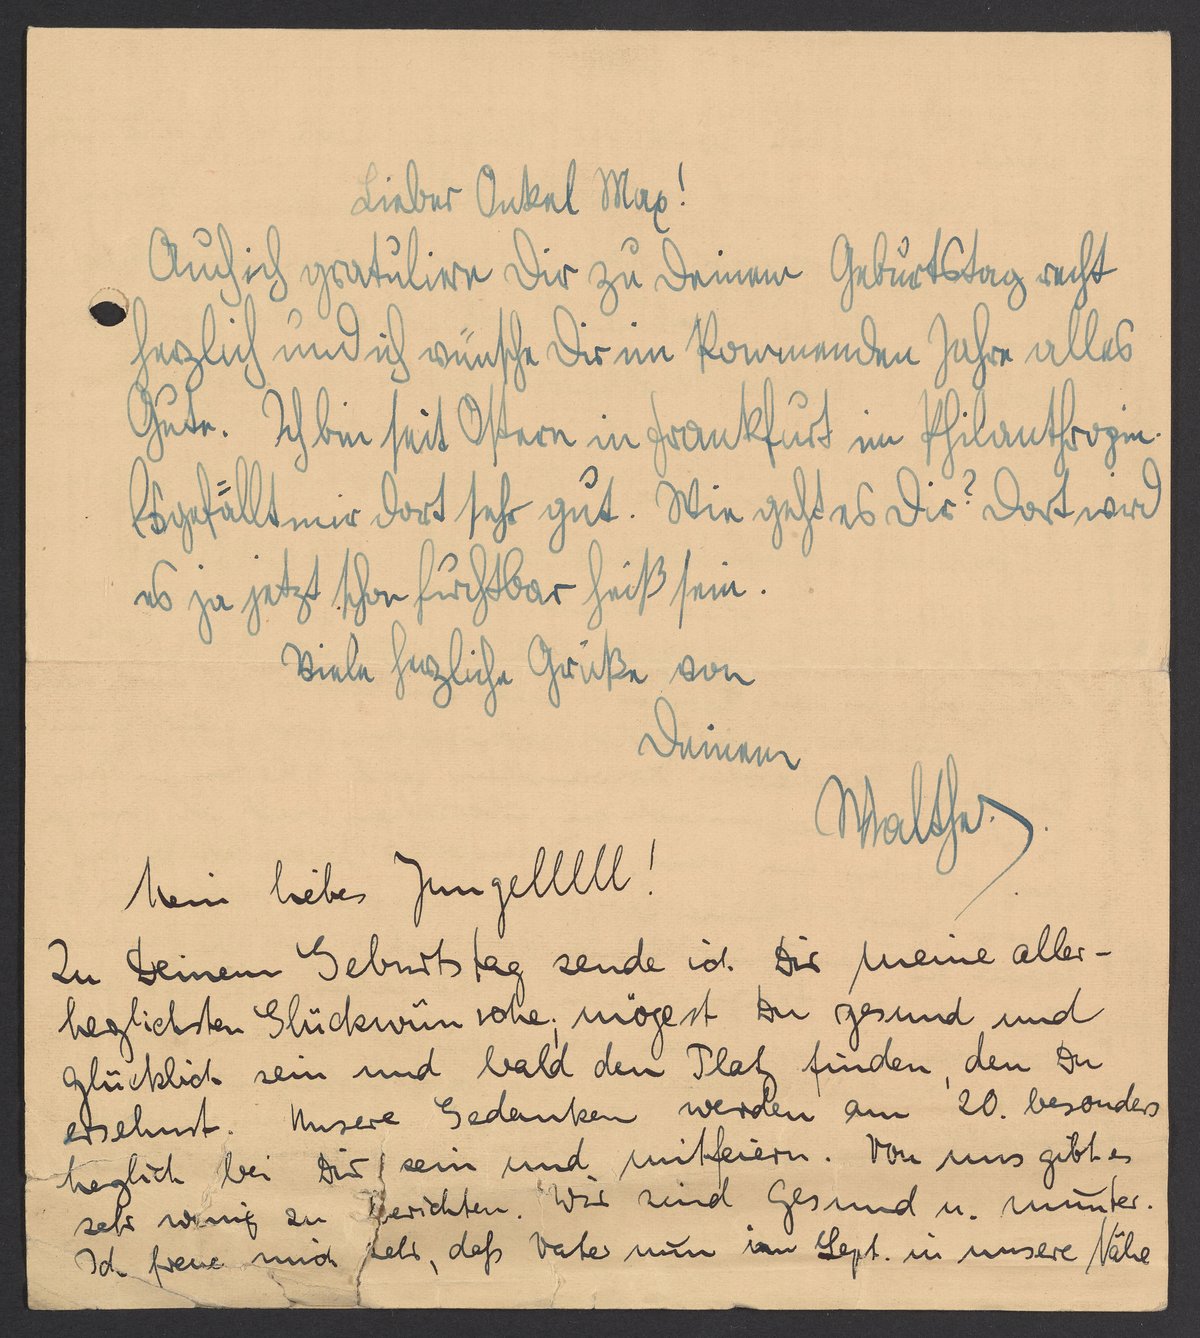 Lieber Onkel Max!
Auch ich gratuliere Dir zu Deinem Geburtstag recht
herzlich und ich wünsche Dir im kommenden Jahre alles
Gute. Ich bin seit Ostern in Frankfurt im Philanthropin.
Es gefällt mir dort sehr gut. Wie geht es Dir? Dort wird
es ja jetzt schon furchtbar heiß sein.
Viele herzliche Grüße von
Deinem
Walther.
Mein liebes Jungelllll!
Zu Deinem Geburtstag sende ich Dir meine aller-
herzlichsten Glückwünsche; mögest Du gesund und
glücklich sein und bald den Platz finden, den Du
ersehnst. Unsere Gedanken werden am 20. besonders
herzlich bei Dir sein und mitfeiern. Von uns gibt es
sehr wenig zu berichten. Wir sind gesund u. munter.
Ich freue mich sehr, daß Vater nun im Sept. in unsere Nähe